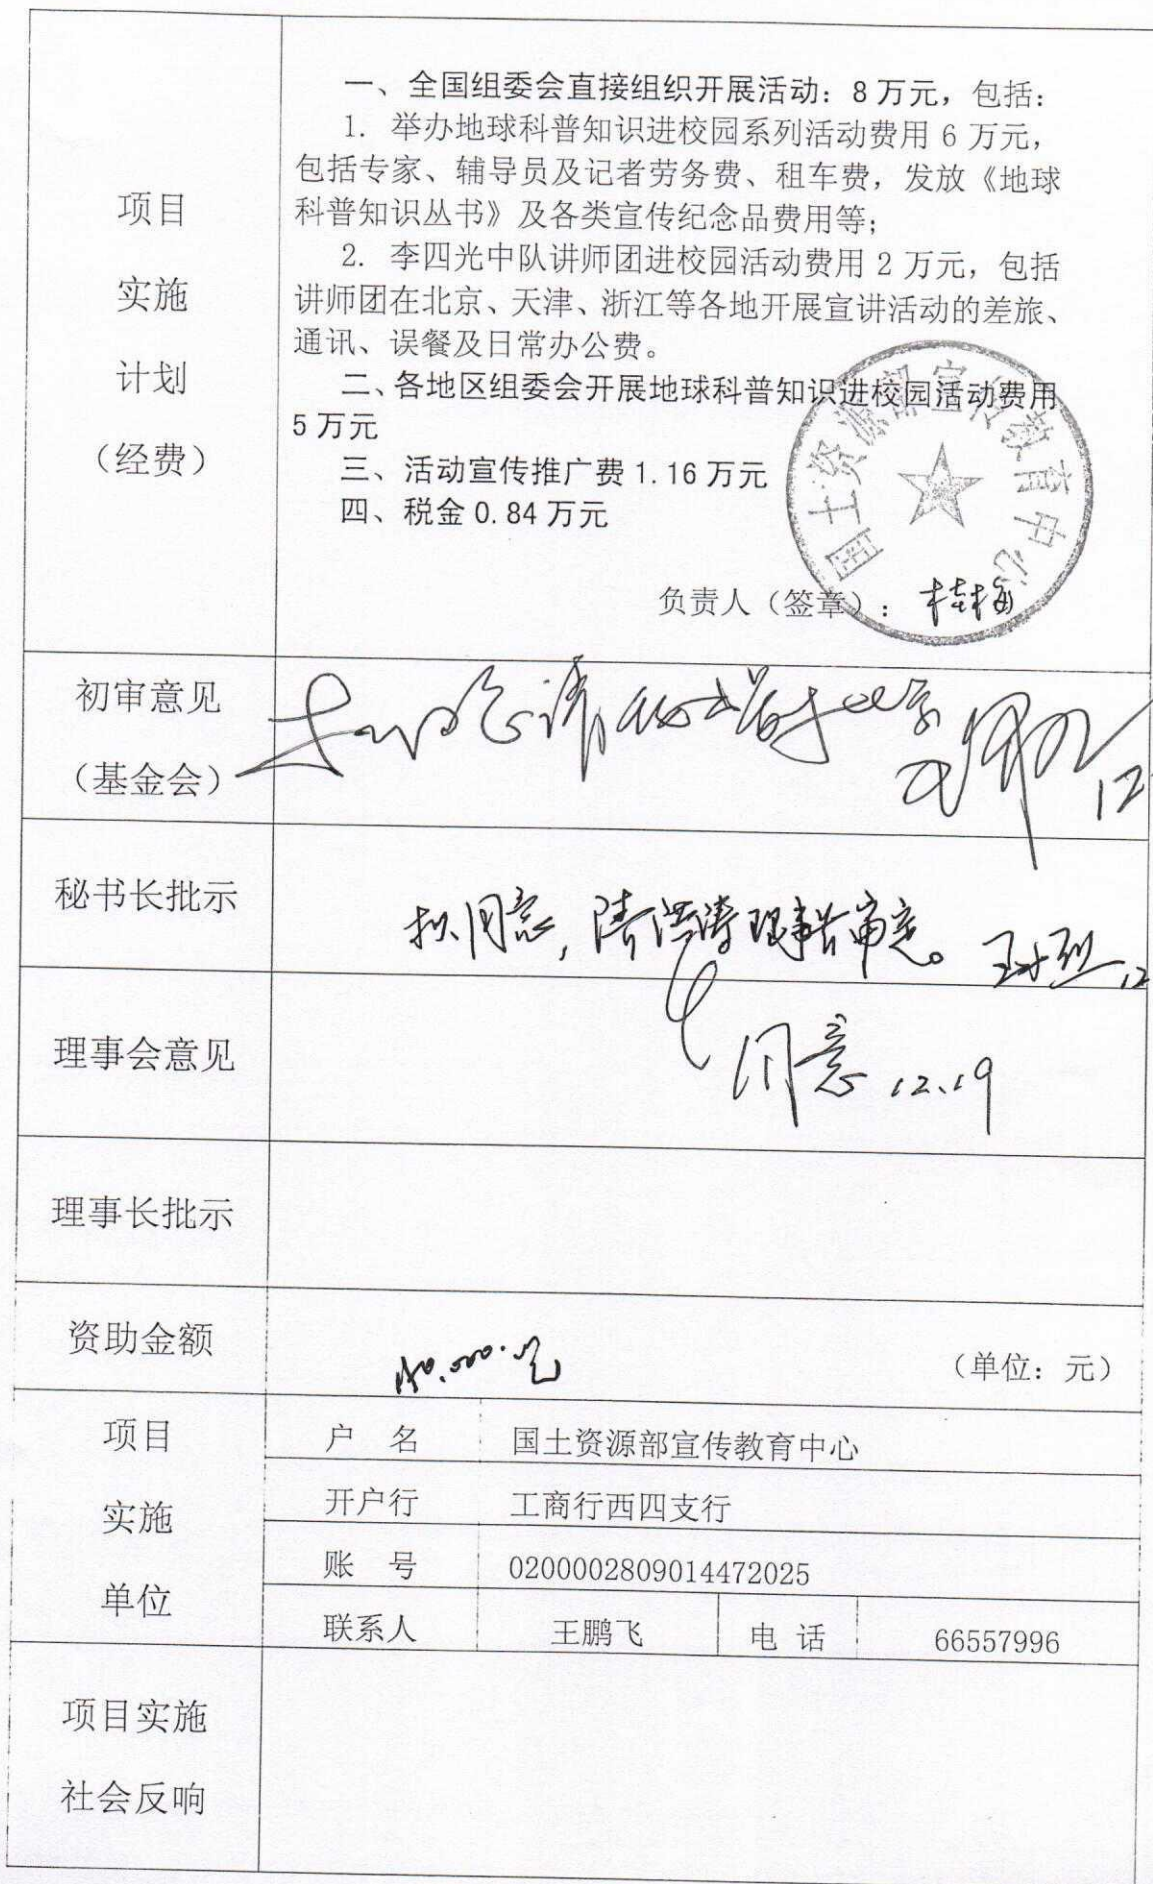 项目
实施
计划
（经费）
一、全国组委会直接组织开展活动：8万元，包括：
1. 举办地球科普知识进校园系列活动费用6万元，
包括专家、辅导员及记者劳务费、租车费，发放《地球
科普知识丛书》及各类宣传纪念品费用等；
2. 李四光中队讲师团进校园活动费用2万元，包括
讲师团在北京、天津、浙江等各地开展宣讲活动的差旅、
通讯、误餐及日常办公费。
二、各地区组委会开展地球科普知识进校园活动费用
5万元
三、活动宣传推广费1.16万元
四、税金0.84万元
国土资源部宣传教育中心
负责人（签章）：
初审意见
（基金会）
12
秘书长批示
拟同意，请洪涛理事长审定。
12
理事会意见
同意 12.19
理事长批示
资助金额
140,000.元
（单位：元）
项目
实施
单位
户 名 国土资源部宣传教育中心
开户行 工商行西四支行
账 号 0200002809014472025
联系人 王鹏飞 电 话 66557996
项目实施
社会反响